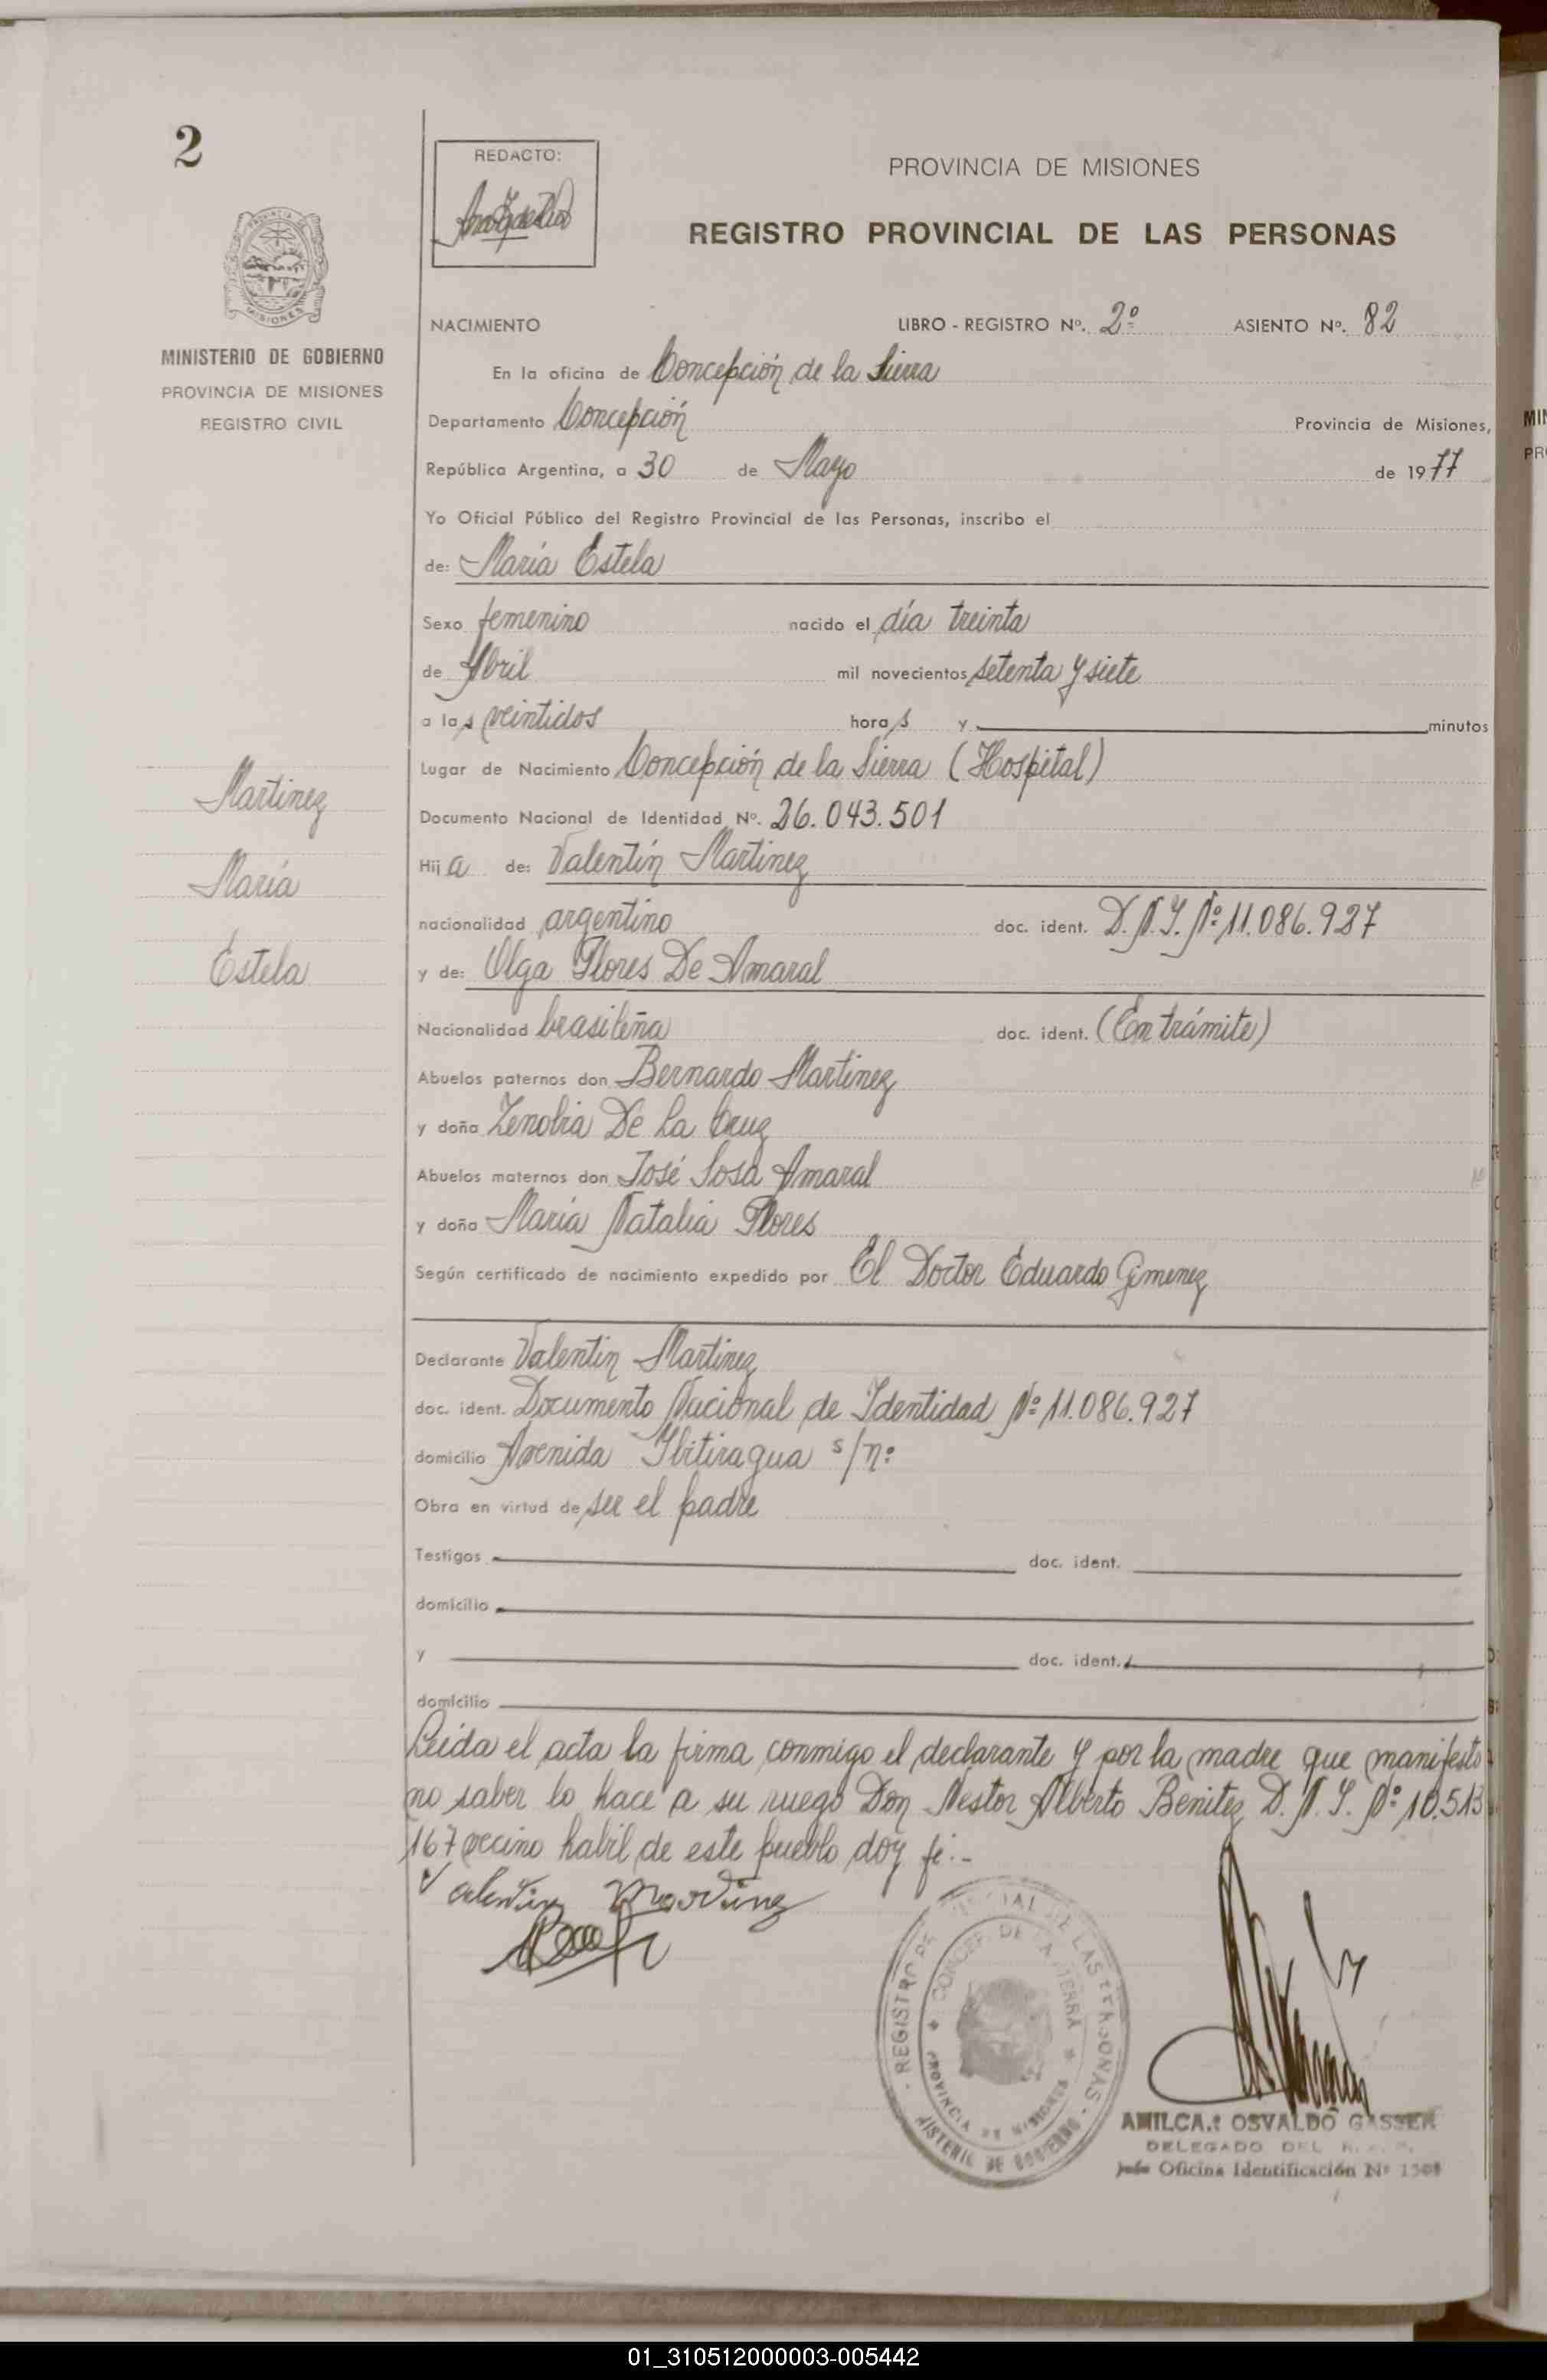 2
REDACTO:
PROVINCIA DE MISIONES
REGISTRO PROVINCIAL DE LAS PERSONAS
MISIONES
MINISTERIO DE GOBIERNO
PROVINCIA DE MISIONES
REGISTRO CIVIL
NACIMIENTO LIBRO - REGISTRO Nº. 2º ASIENTO Nº. 82
En la oficina de Concepción de la Sierra
Departamento Concepción Provincia de Misiones,
República Argentina, a 30 de Mayo de 1977
Yo Oficial Público del Registro Provincial de las Personas, inscribo el
de: María Estela
Sexo femenino nacido el día treinta
de Abril mil novecientos setenta y siete
a las veintidos horas y minutos
Lugar de Nacimiento Concepción de la Sierra (Hospital)
Documento Nacional de Identidad Nº. 26.043.501
Hija de: Valentín Martinez
nacionalidad argentino doc. ident. D.N.I. Nº 11.086.927
y de: Olga Flores De Amaral
Nacionalidad brasileña doc. ident. (En trámite)
Abuelos paternos don Bernardo Martinez
y doña Zenobia De La Cruz
Abuelos maternos don José Sosa Amaral
y doña María Natalia Flores
Según certificado de nacimiento expedido por El Doctor Eduardo Gimenez
Martinez
María
Estela
Declarante Valentin Martinez
doc. ident. Documento Nacional de Identidad Nº 11.086.927
domicilio Avenida Ibitiragua s/nº
Obra en virtud de ser el padre
Testigos doc. ident.
domicilio
y doc. ident.
domicilio
Leida el acta la firma conmigo el declarante y por la madre que manifestó
no saber lo hace a su ruego Don Nestor Alberto Benitez D.N.I. Nº 10.513
167 vecino habil de este pueblo doy fé.-
Valentin Martinez
REGISTRO PROVINCIAL DE LAS PERSONAS
CONCEP. DE LA SIERRA
PROVINCIA DE MISIONES
MINISTERIO DE GOBIERNO
AMILCAR OSVALDO GASSEN
DELEGADO DEL
Jefe Oficina Identificación Nº
MIN
PRO
01_310512000003-005442